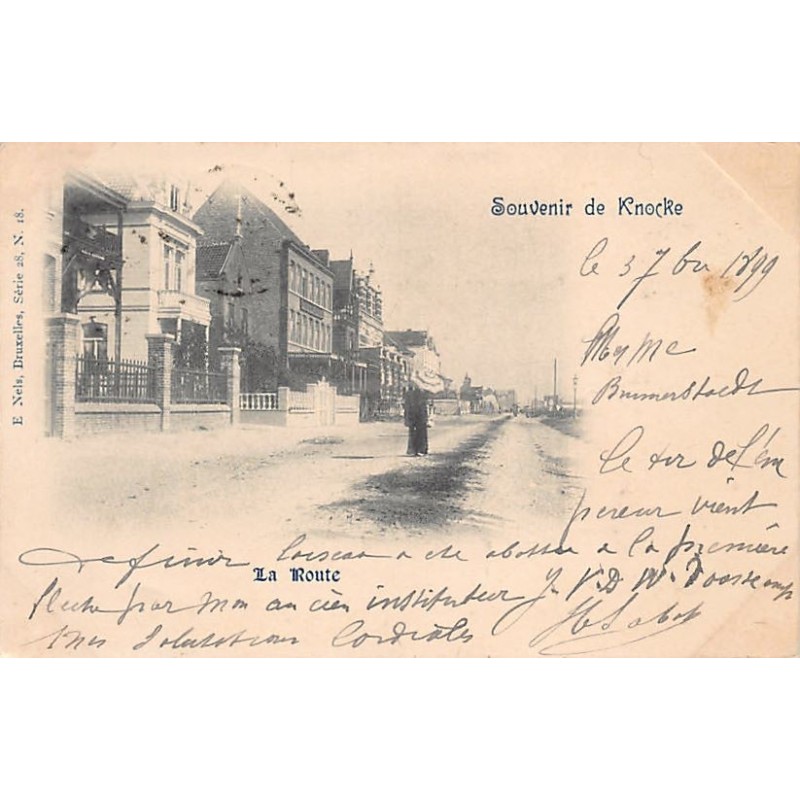 Souvenir de Knocke
E. Nels, Bruxelles, Série 28, N. 18.
le 3 7bre 1899
Mr Mme
Bummerstaedt
Le tir de l'em
pereur vient
de finir l'oiseau a ete abattu a la première
La Route
fleche par mon ancien instituteur J. V. D W.
Mes Salutations Cordiales